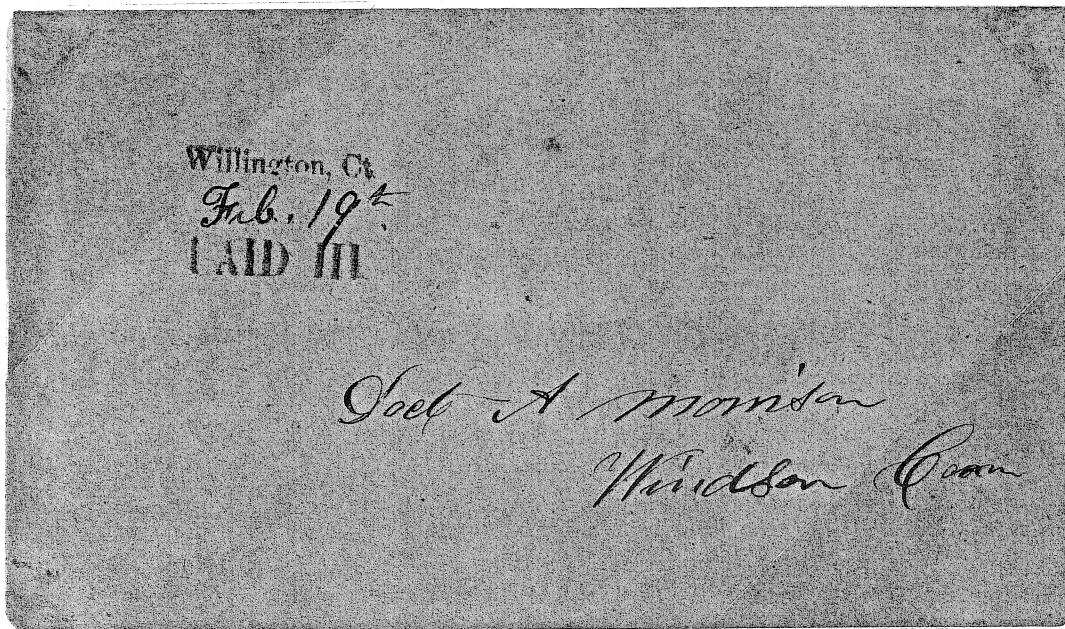 Willington, Ct.
Feb. 19th
PAID III
Doct A Morrison
Windsor Conn